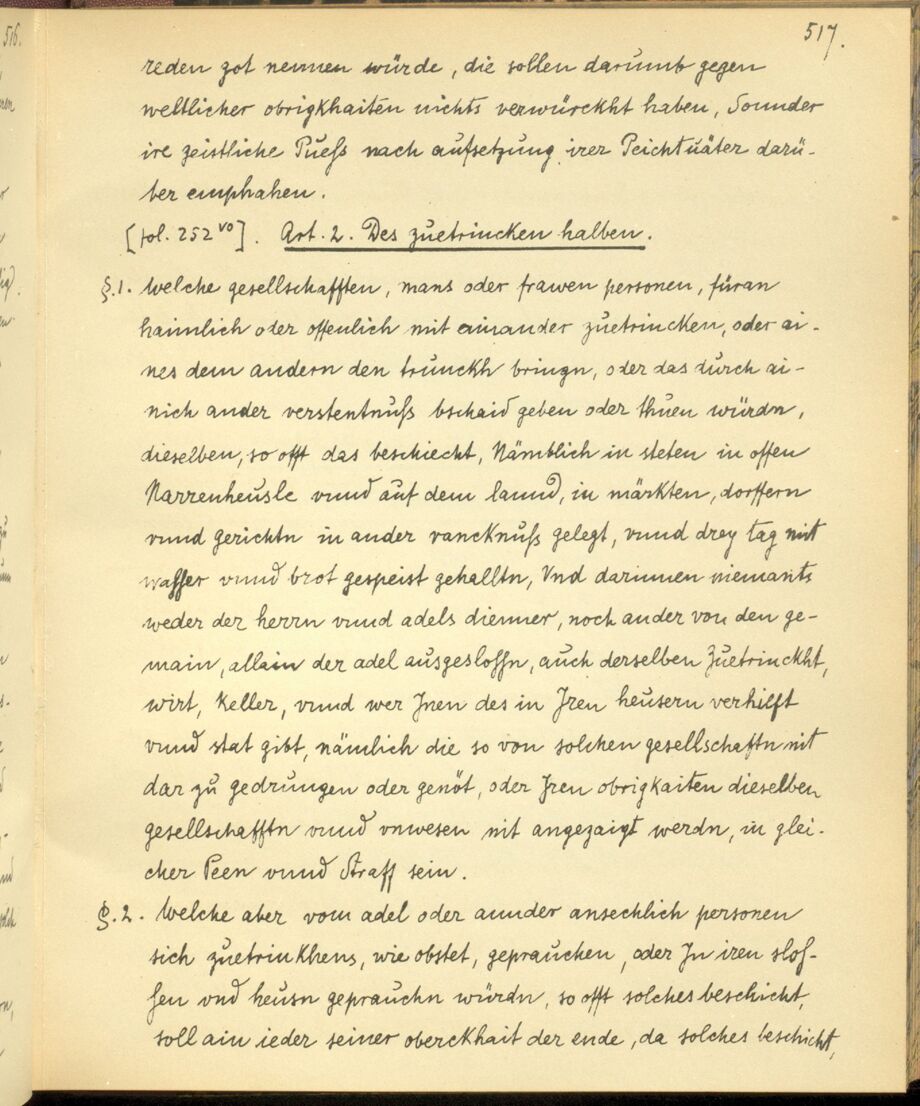 517.
516.
reden got nennen würde, die sollen darumb gegen
weltlicher obrigkhaiten nichts verwürckht haben, Sonnder
ire geistliche Puess nach aufsetzung irer Peichtuäter darü-
ber emphahen.
[fol. 252 vo]. Art. 2. Des zuetrincken halben.
§.1. Welche gesellschafften, mans oder frawen personen, füran
haimlich oder offenlich mit einander zuetrincken, oder ai-
nes dem andern den trunckh bringn, oder das durch ai-
nich ander verstentnuss bschaid geben oder thuen würdn,
dieselben, so offt das beschiecht, Nämblich in steten in offen
Narrenheusle vnnd auf dem lannd, in märkten, dorffern
vnnd gerichtn in ander vancknuss gelegt, vnnd drey tag mit
wasser vnnd brot gespeist gehalltn, Vnd darinnen niemants
weder der herrn vnnd adels dienner, noch ander von den ge-
main, allain der adel ausgeslossn, auch derselben Zuetrinckht,
wirt, Keller, vnnd wer Jnen des in Jren heusern verhilft
vnnd stat gibt, nämlich die so von solchen gesellschaftn nit
dar zu gedrungen oder genöt, oder Jren obrigkaiten dieselben
gesellschafftn vnnd vnwesen nit angezaigt werdn, in glei-
cher Peen vnnd Straff sein.
§.2. Welche aber vom adel oder annder ansechlich personen
sich zuetrinkhens, wie obstet, geprauchen, oder Jn iren slos-
sen vnd heusn geprauchn würdn, so offt solches beschicht,
soll ain ieder seiner oberckhait der ende, da solches beschicht,